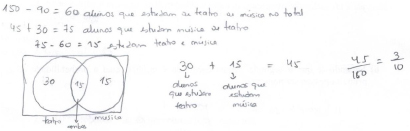 150 - 90 = 60 alunos que estudam ou teatro ou música no total
45 + 30 = 75 alunos que estudam música ou teatro
75 - 60 = 15 estudam teatro e música
30 15 15
teatro ambas musica
30 + 15 = 45
alunos que estudam teatro
alunos que estudam música
45/150 = 3/10